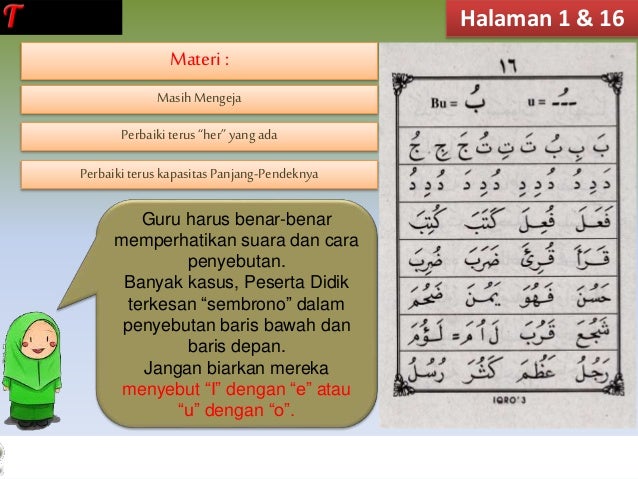 T
Halaman 1 & 16
Materi :
Masih Mengeja
Perbaiki terus “her” yang ada
Perbaiki terus kapasitas Panjang-Pendeknya
Guru harus benar-benar
memperhatikan suara dan cara
penyebutan.
Banyak kasus, Peserta Didik
terkesan “sembrono” dalam
penyebutan baris bawah dan
baris depan.
Jangan biarkan mereka
menyebut “I” dengan “e” atau
“u” dengan “o”.
١٦
Bu = بُ u =
بَ بِ بُ تَ تِ تُ جَ جِ جُ
فَعَلَ فُعِلَ كَتَبَ كُتِبَ
قَرَأَ قُرِئَ ضَرَبَ ضُرِبَ
حَسُنَ فَهُوَ يَمُنَ ضَخُمَ
شَجُعَ قَرُبَ لَ أُ مَ = لَؤُمَ
رَجُلُ عَظُمَ كَثُرَ رُسُلُ
IQRO'3